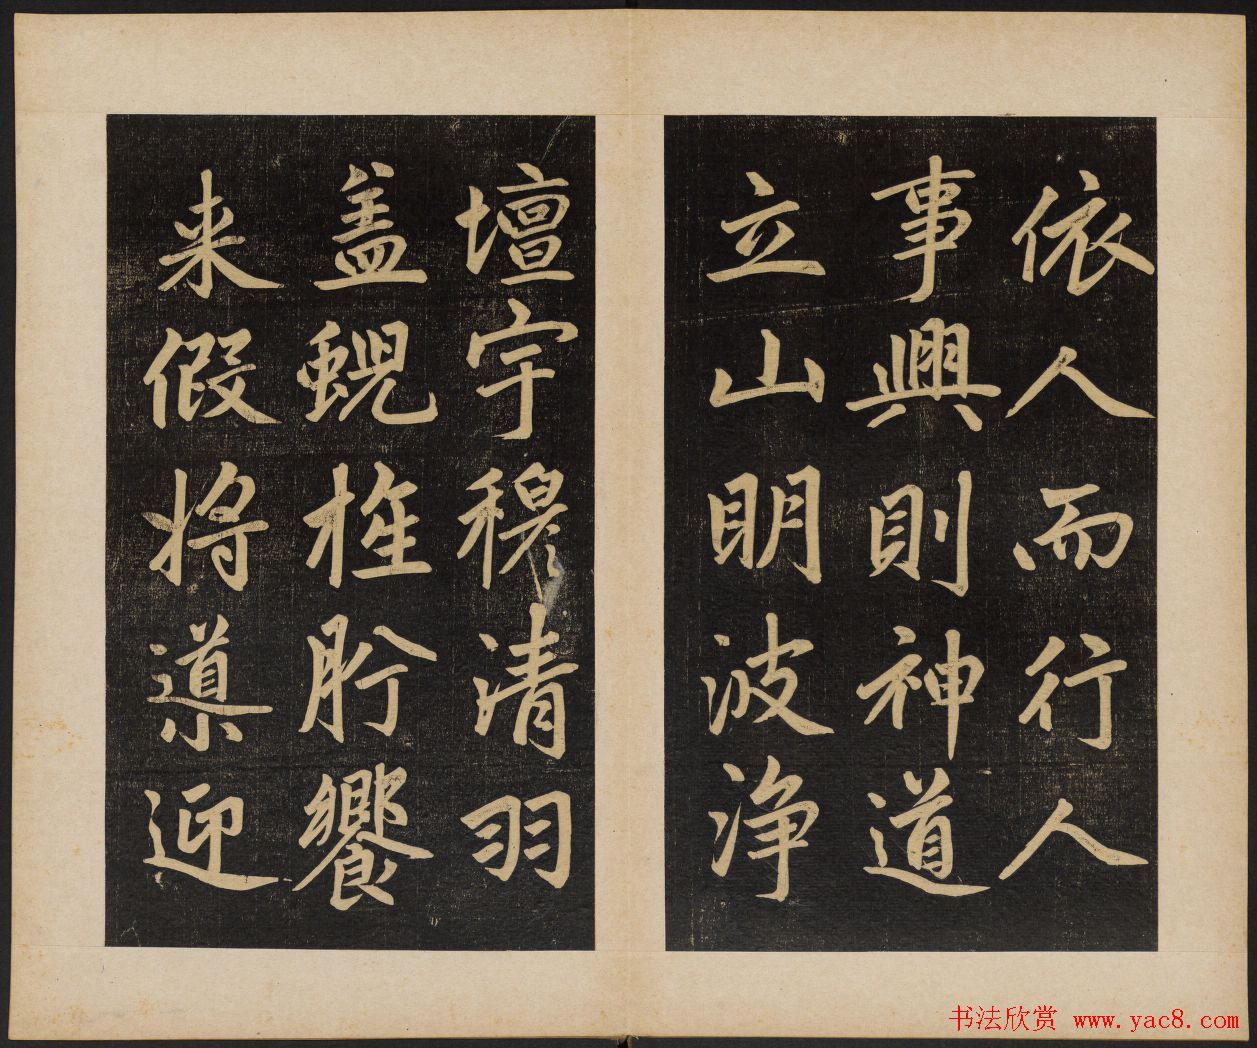 依人而行人
事興則神道
立山明波淨
壇宇穆清羽
盖蜺旌肸饗
来假将導迎
书法欣赏 www.yac8.com.